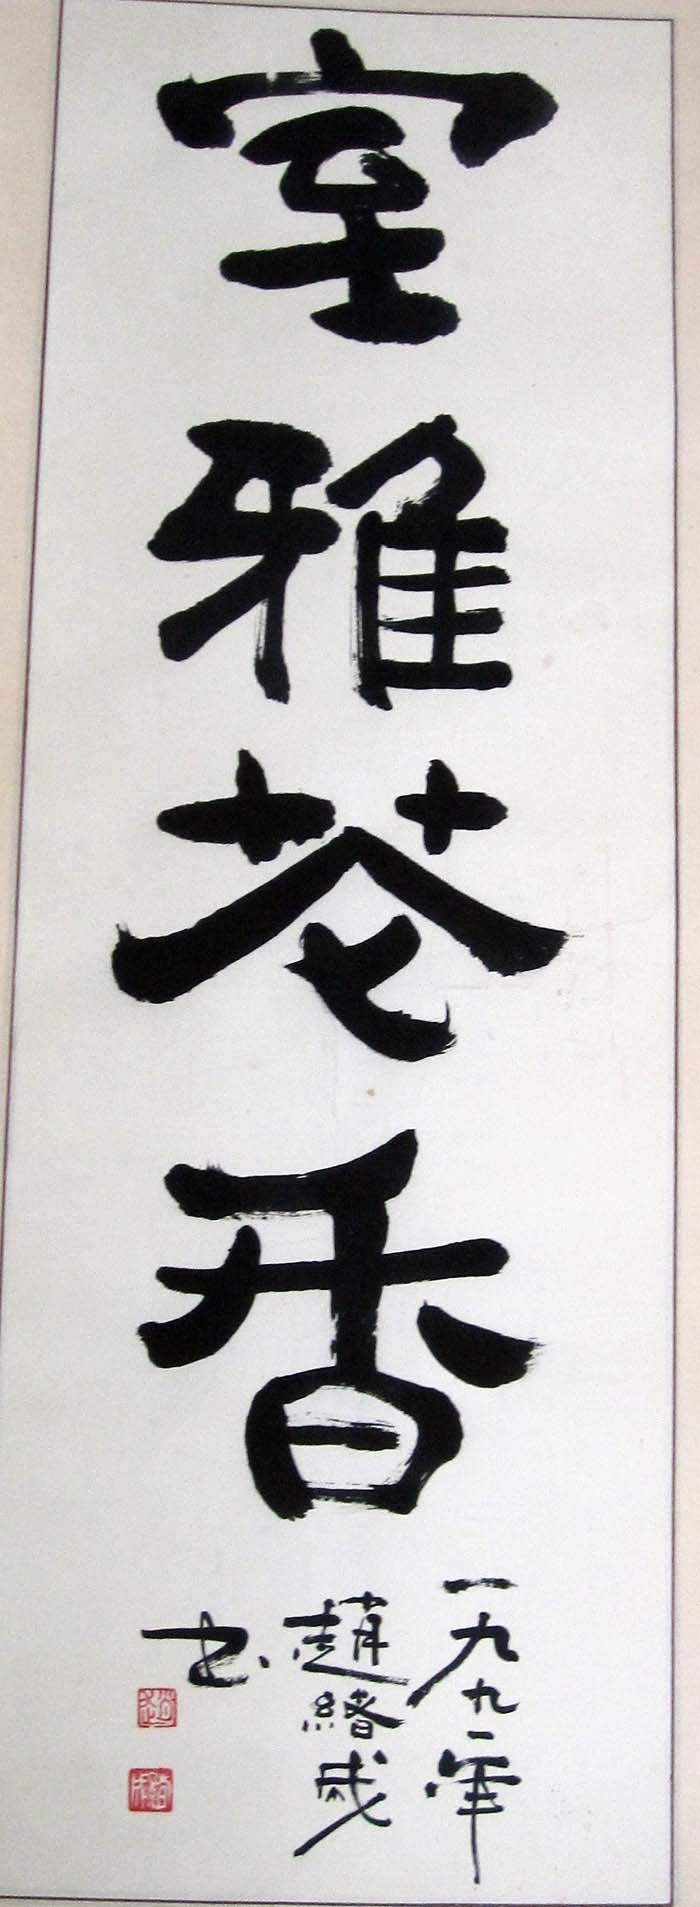 室雅苍香
一九九一年
趙緒成
书